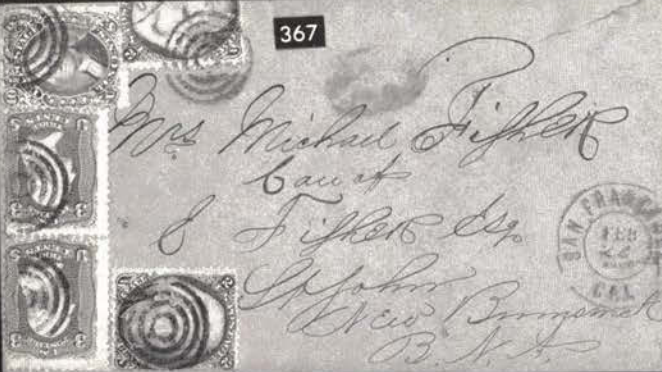 367
Mrs Michael Fisher
Care of
E Fisher Esq
St John
New Brunswick
B. N. A.
SAN FRANCISCO
FEB
22
CAL